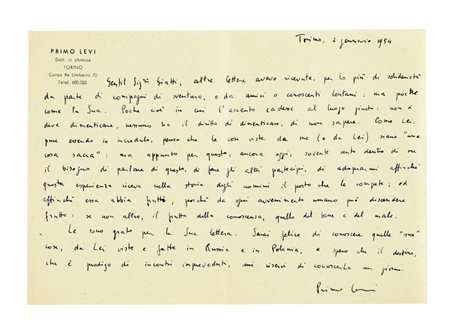 PRIMO LEVI
Dott. in chimica
TORINO
Corso Re Umberto 75
Telef. 680.025
Torino, 2 gennaio 1954
Gentil Sig. Giatti, altre lettere avevo ricevute, per lo più di solidarietà
da parte di compagni di sventura, o da amici o conoscenti lontani: ma poche
come la Sua. Poche cioè in cui l'accento cadesse al luogo giusto: non si
deve dimenticare, nessuno ha il diritto di dimenticare, di non sapere. Come Lei,
pure essendo io incredulo, penso che le cose viste da me (e da Lei) siano "una
cosa sacra": ma appunto per questo, ancora oggi, sovente sento dentro di me
il bisogno di parlare di questo, di fare gli altri partecipi, di adoperarmi affinché
questa esperienza riceva nella storia degli uomini il posto che le compete; ed
affinché essa abbia frutto, poiché da ogni avvenimento umano può discendere
frutto: se non altro, il frutto della conoscenza, quello del bene e del male.
Le sono grato per la Sua lettera. Sarei felice di conoscere quelle "sue"
cose, da Lei viste e fatte in Russia e in Polonia, e spero che il destino,
che è prodigo di incontri impreveduti, mi riservi di conoscerLa un giorno.
Primo Levi